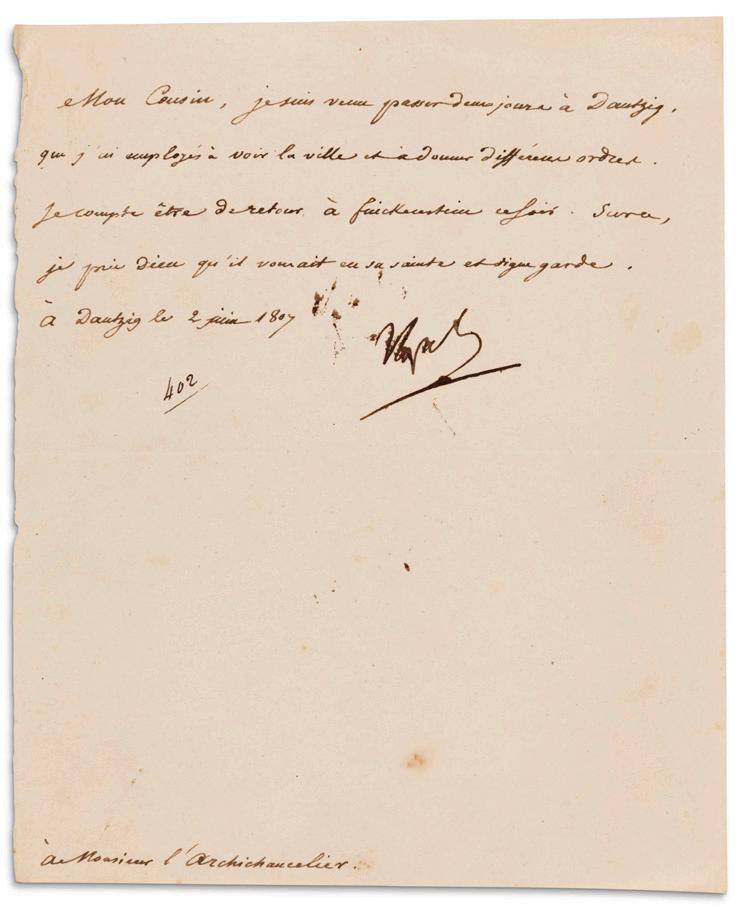 Mon Cousin, je suis venu passer deux jours à Dantzig,
que j'ai employés à voir la ville et à donner différens ordres.
Je compte être de retour à finckenstein ce soir. Sur ce,
je prie Dieu qu'il vous ait en sa sainte et digne garde.
à Dantzig le 2 juin 1807
Nap
402
à Monsieur l'Archichancelier.